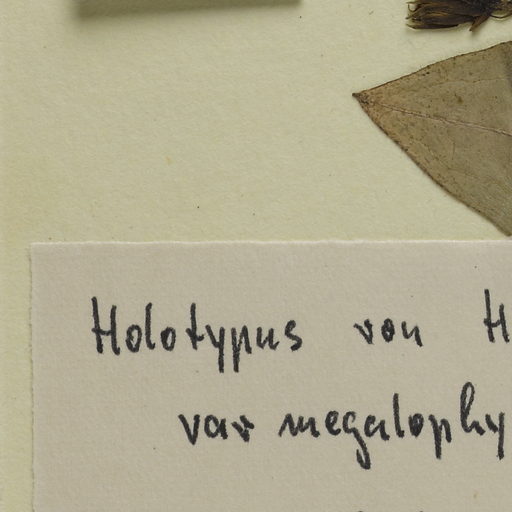 Holotypus von H
var megalophy